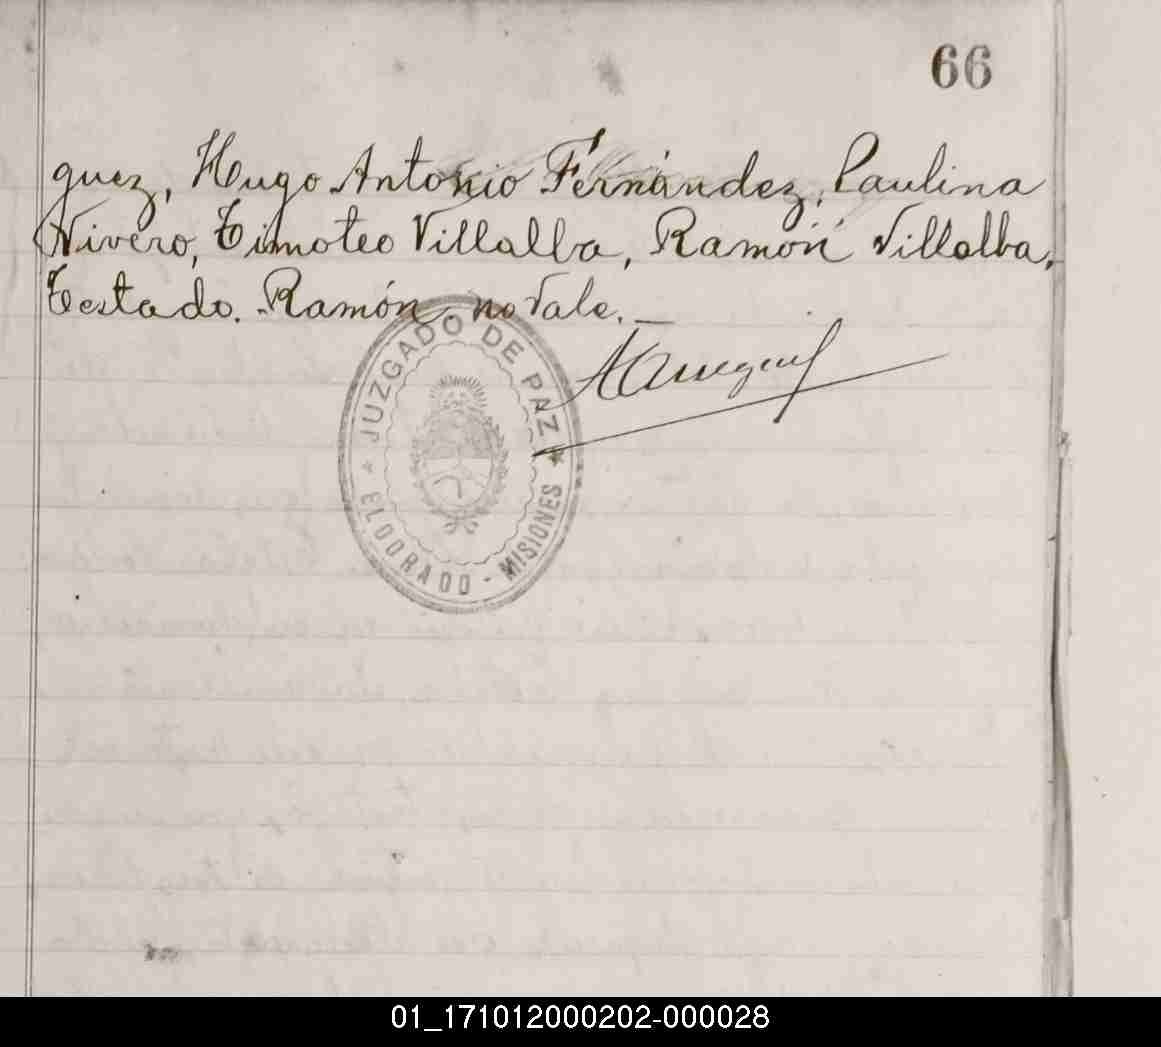 66
guez, Hugo Antonio Fernández, Paulina
Nivero, Timoteo Villalba, Ramón Villalba,
Testado. Ramón. no Vale. —
JUZGADO DE PAZ
ELDORADO - MISIONES
01_171012000202-000028